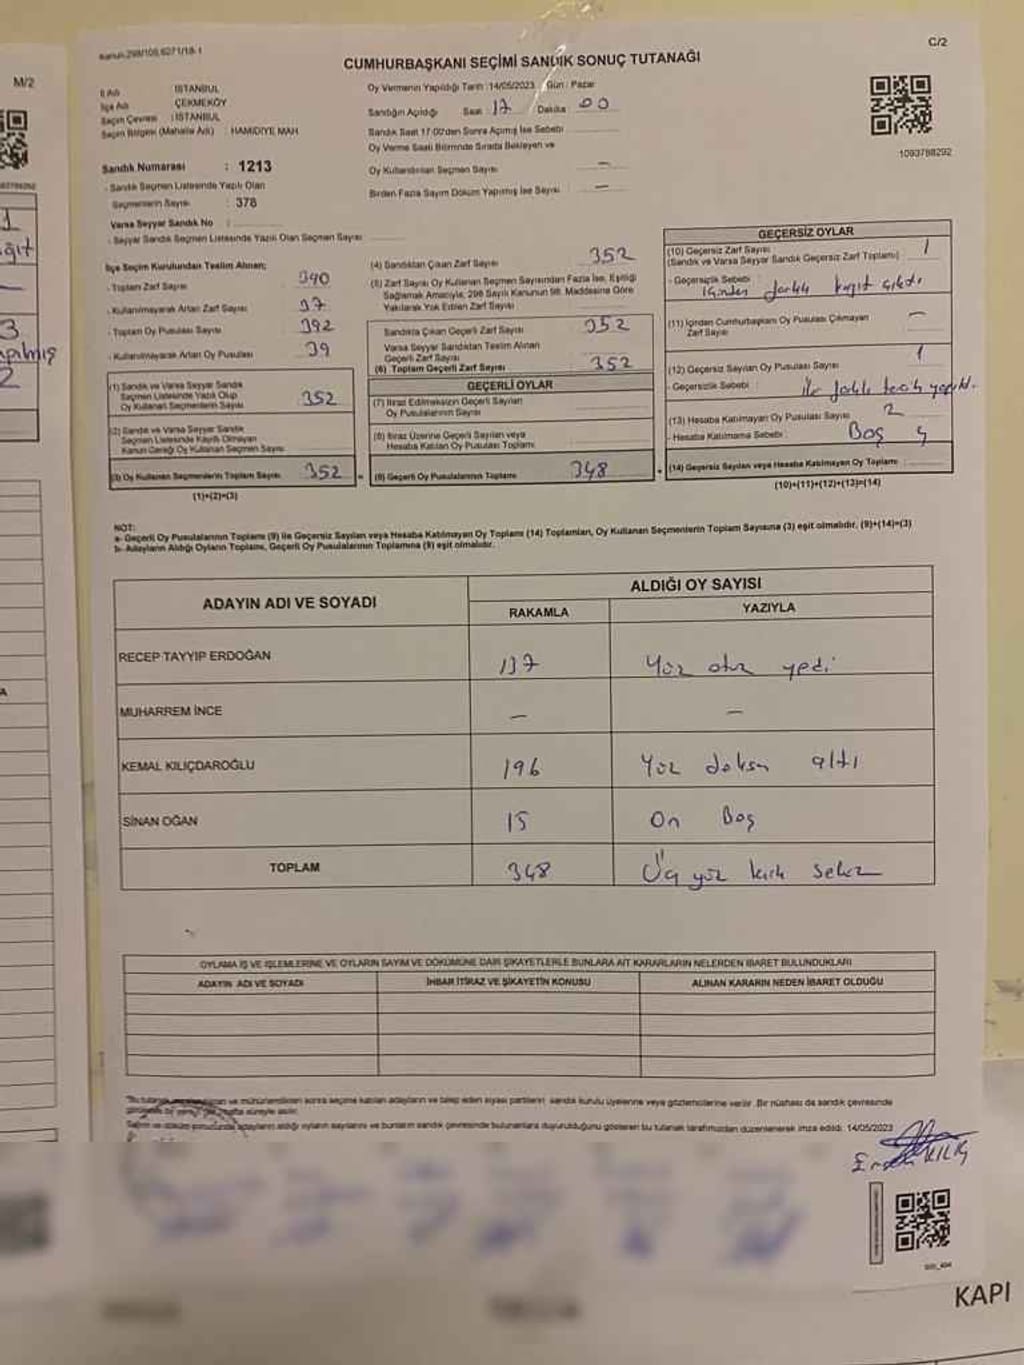 M/2
Kanun:298/105,6271/18-1
C/2
CUMHURBAŞKANI SEÇİMİ SANDIK SONUÇ TUTANAĞI
İl Adı : İSTANBUL
İlçe Adı : ÇEKMEKÖY
Seçim Çevresi : İSTANBUL
Seçim Bölgesi (Mahalle Adı) : HAMİDİYE MAH
Sandık Numarası : 1213
- Sandık Seçmen Listesinde Yazılı Olan
Seçmenlerin Sayısı : 378
Varsa Seyyar Sandık No :
- Seyyar Sandık Seçmen Listesinde Yazılı Olan Seçmen Sayısı
Oy Vermenin Yapıldığı Tarih :14/05/2023 Gün : Pazar
Sandığın Açıldığı Saat : 17 Dakika : 00
Sandık Saat 17:00'den Sonra Açılmış İse Sebebi
Oy Verme Saati Bitiminde Sırada Bekleyen ve
Oy Kullandırılan Seçmen Sayısı : —
Birden Fazla Sayım Döküm Yapılmış İse Sayısı : —
1093788292
İlçe Seçim Kurulundan Teslim Alınan;
- Toplam Zarf Sayısı 390
- Kullanılmayarak Artan Zarf Sayısı 37
- Toplam Oy Pusulası Sayısı 392
- Kullanılmayarak Artan Oy Pusulası 39
(1) Sandık ve Varsa Seyyar Sandık
Seçmen Listesinde Yazılı Olup
Oy Kullanan Seçmenlerin Sayısı 352
(2) Sandık ve Varsa Seyyar Sandık
Seçmen Listesinde Kayıtlı Olmayan
Kanun Gereği Oy Kullanan Seçmen Sayısı
(3) Oy Kullanan Seçmenlerin Toplam Sayısı 352
(1)+(2)=(3)
(4) Sandıktan Çıkan Zarf Sayısı 352
(5) Zarf Sayısı Oy Kullanan Seçmen Sayısından Fazla İse, Eşitliği
Sağlamak Amacıyla, 298 Sayılı Kanunun 98. Maddesine Göre
Yakılarak Yok Edilen Zarf Sayısı
Sandıkta Çıkan Geçerli Zarf Sayısı 352
Varsa Seyyar Sandıktan Teslim Alınan
Geçerli Zarf Sayısı
(6) Toplam Geçerli Zarf Sayısı 352
GEÇERLİ OYLAR
(7) İtiraz Edilmeksizin Geçerli Sayılan
Oy Pusulalarının Sayısı
(8) İtiraz Üzerine Geçerli Sayılan veya
Hesaba Katılan Oy Pusulası Toplamı
(9) Geçerli Oy Pusulalarının Toplamı 348
GEÇERSİZ OYLAR
(10) Geçersiz Zarf Sayısı 1
(Sandık ve Varsa Seyyar Sandık Geçersiz Zarf Toplamı)
- Geçersizlik Sebebi :
içinden farklı kağıt çıktı
(11) İçinden Cumhurbaşkanı Oy Pusulası Çıkmayan —
Zarf Sayısı
(12) Geçersiz Sayılan Oy Pusulası Sayısı 1
- Geçersizlik Sebebi : iki farklı tercih yapıldı.
(13) Hesaba Katılmayan Oy Pusulası Sayısı 2
- Hesaba Katılmama Sebebi : Boş
(14) Geçersiz Sayılan veya Hesaba Katılmayan Oy Toplamı 4
(10)+(11)+(12)+(13)=(14)
NOT:
a- Geçerli Oy Pusulalarının Toplamı (9) ile Geçersiz Sayılan veya Hesaba Katılmayan Oy Toplamı (14) Toplamları, Oy Kullanan Seçmenlerin Toplam Sayısına (3) eşit olmalıdır. (9)+(14)=(3)
b- Adayların Aldığı Oyların Toplamı, Geçerli Oy Pusulalarının Toplamına (9) eşit olmalıdır.
ADAYIN ADI VE SOYADI
ALDIĞI OY SAYISI
RAKAMLA YAZIYLA
RECEP TAYYİP ERDOĞAN 137 Yüz otuz yedi
MUHARREM İNCE — —
KEMAL KILIÇDAROĞLU 196 Yüz doksan altı
SİNAN OĞAN 15 On Beş
TOPLAM 348 Üç yüz kırk sekiz
OYLAMA İŞ VE İŞLEMLERİNE VE OYLARIN SAYIM VE DÖKÜMÜNE DAİR ŞİKAYETLERLE BUNLARA AİT KARARLARIN NELERDEN İBARET BULUNDUKLARI
ADAYIN ADI VE SOYADI İHBAR İTİRAZ VE ŞİKAYETİN KONUSU ALINAN KARARIN NEDEN İBARET OLDUĞU
ve mühürlendikten sonra seçime katılan adayların ve talep eden siyasi partilerin sandık kurulu üyelerine veya gözlemcilerine verilir. Bir nüshası da sandık çevresinde
adayların aldığı oyların sayılarını ve bunların sandık çevresinde bulunanlara duyurulduğunu gösteren bu tutanak tarafımızdan düzenlenerek imza edildi. 14/05/2023
KILIÇ
KAPI